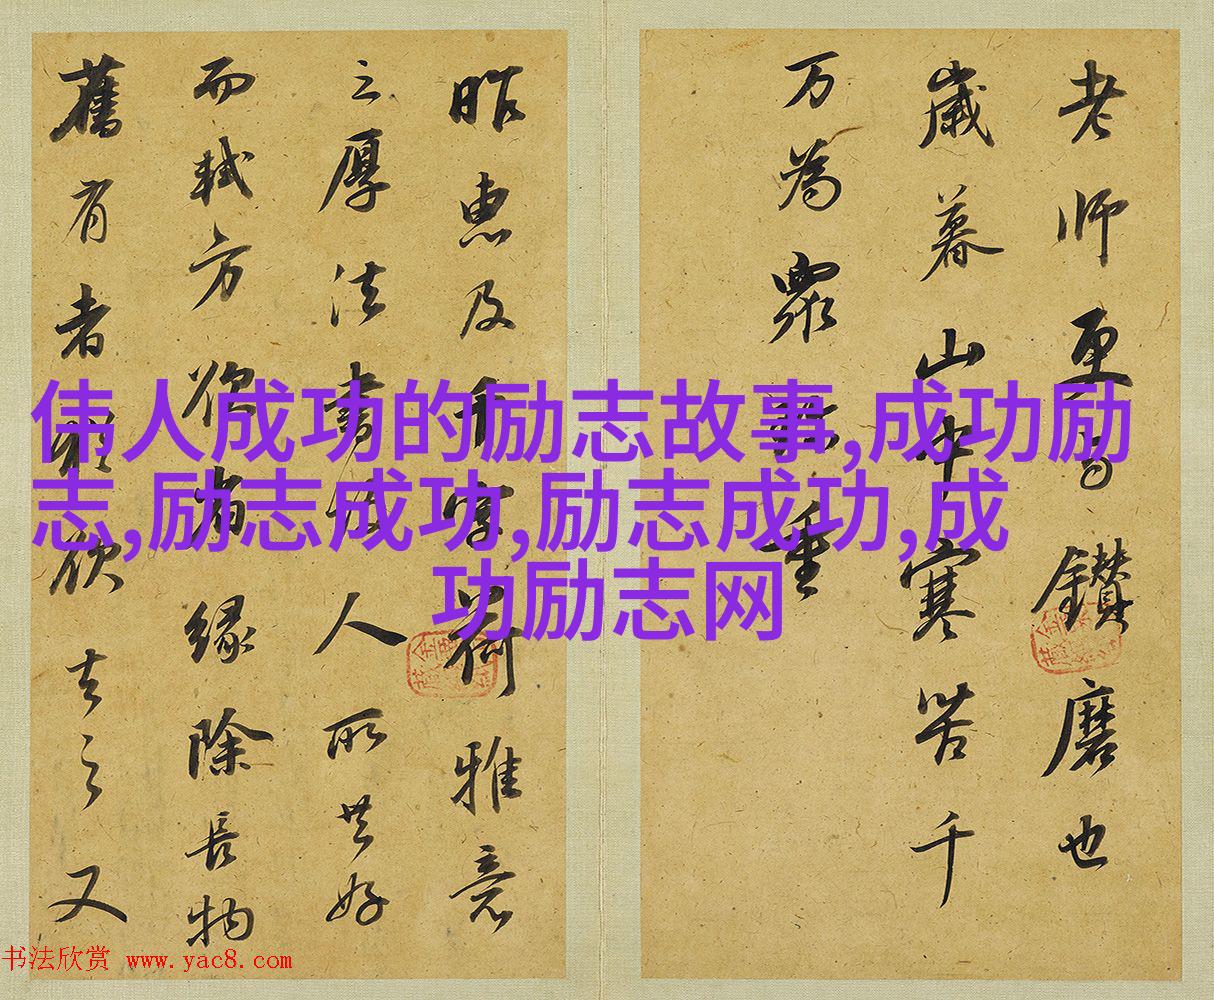 老师更与鑽磨也
歲暮山中寒苦千
万為眾珎重
昨惠及千字荷雅意
之厚法書固人所共好
而軾方欲省緣除長物
舊有者猶欲去之又
伟人成功的励志故事,成功励
志,励志成功,励志成功,成
功励志网
书法欣赏 www.yac8.com